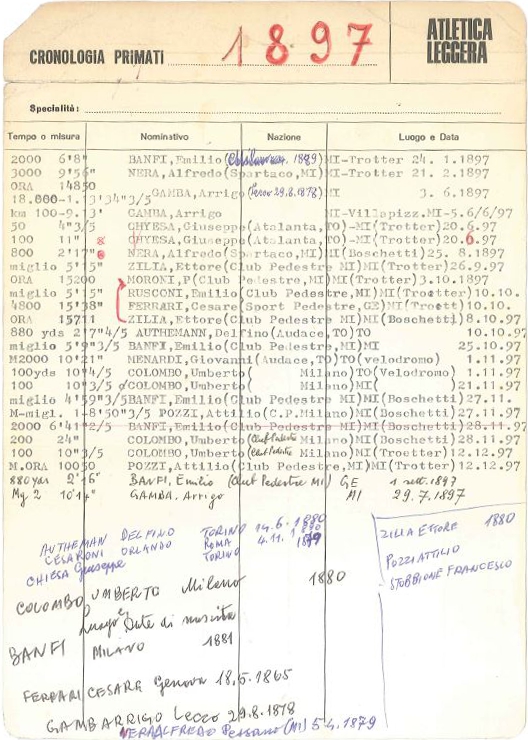 CRONOLOGIA PRIMATI 1897
ATLETICA LEGGERA
Specialità:
Tempo o misura Nominativo Nazione Luogo e Data
2000 6'8" BANFI,Emilio( 1889)MI-Trotter 24. 1.1897
3000 9'56" NERA,Alfredo(Spartaco,MI)MI-Trotter 21. 2.1897
ORA 14850
GAMBA,Arrigo (Lecco 29.8.1878) MI 3. 6.1897
18.000-1.13'34"3/5
km 100-9.13' GAMBA,Arrigo MI-Villapizz.MI-5.6/6/97
50 4"3/5 CHYESA,Giuseppe(Atalanta,TO)-MI(Trotter)20.6.97
100 11" CHYESA,Giuseppe(Atalanta,TO)-MI(Trotter)20.6.97
800 2'17" NERA,Alfredo(Spartaco,MI)MI(Boschetti)25. 8.1897
miglio 5'15" ZILIA,Ettore(Club Pedestre MI)MI(Trotter)26.9.97
ORA 15200 MORONI,P(Club Pedestre,MI)MI(Trotter)3.10.1897
miglio 5'15" RUSCONI,Emilio(Club Pedestre,MI)MI(Troetter)10.10.
4800 15'38" FERRARI,Cesare(Sport Pedestre,GE)MI(Trotter)10.10.
ORA 15711 ZILIA,Ettore(Club Pedestre MI)MI(Boschetti)8.10.97
880 yds 2'7"4/5 AUTHEMANN,Delfino(Audace,TO)TO 10.10.97
miglio 5'9"3/5 BANFI,Emilio(Club Pedestre,MI)MI 25.10.97
M2000 10'21" MENARDI,Giovanni(Audace,TO)TO(velodromo) 1.11.97
100yds 10"4/5 COLOMBO,Umberto( Milano)TO(Velodromo) 1.11.97
100 10"3/5 COLOMBO,Umberto( Milano)MI( )21.11.97
miglio 4'59"3/5 BANFI,Emilio(Club Pedestre,MI)MI(Boschetti)27.11.
M-migl. 1-8'50"3/5 POZZI,Attilio(C.P.Milano)MI(Boschetti)27.11.97
2000 6'41"2/5 BANFI,Emilio(Club Pedestre MI)MI(Boschetti)28.11.97
200 24" COLOMBO,Umberto(Club Pedestre Milano)MI(Boschetti)28.11.97
100 10"3/5 COLOMBO,Umberto(Club Pedestre Milano)MI(Trotter)12.12.97
M.ORA 10050 POZZI,Attilio(Club Pedestre,MI)MI(Trotter)12.12.97
880 yds 2'16" BANFI, Emilio (Club Pedestre MI) GE 1 sett. 1897
Mg 2 10'14" GAMBA, Arrigo MI 29.7.1897
AUTHEMAN DELFINO TORINO 14.6.1880
CESARONI ORLANDO ROMA 4.11.1880
CHIESA Giuseppe TORINO 1879
COLOMBO UMBERTO Milano 1880
Luogo e Date di nascita
BANFI MILANO 1881
FERRARI CESARE Genova 18.5.1865
GAMBA ARRIGO Lecco 29.8.1878
NERA ALFREDO Pessano (MI) 5.4.1879
ZILIA ETTORE 1880
POZZI ATTILIO
STOBBIONE FRANCESCO